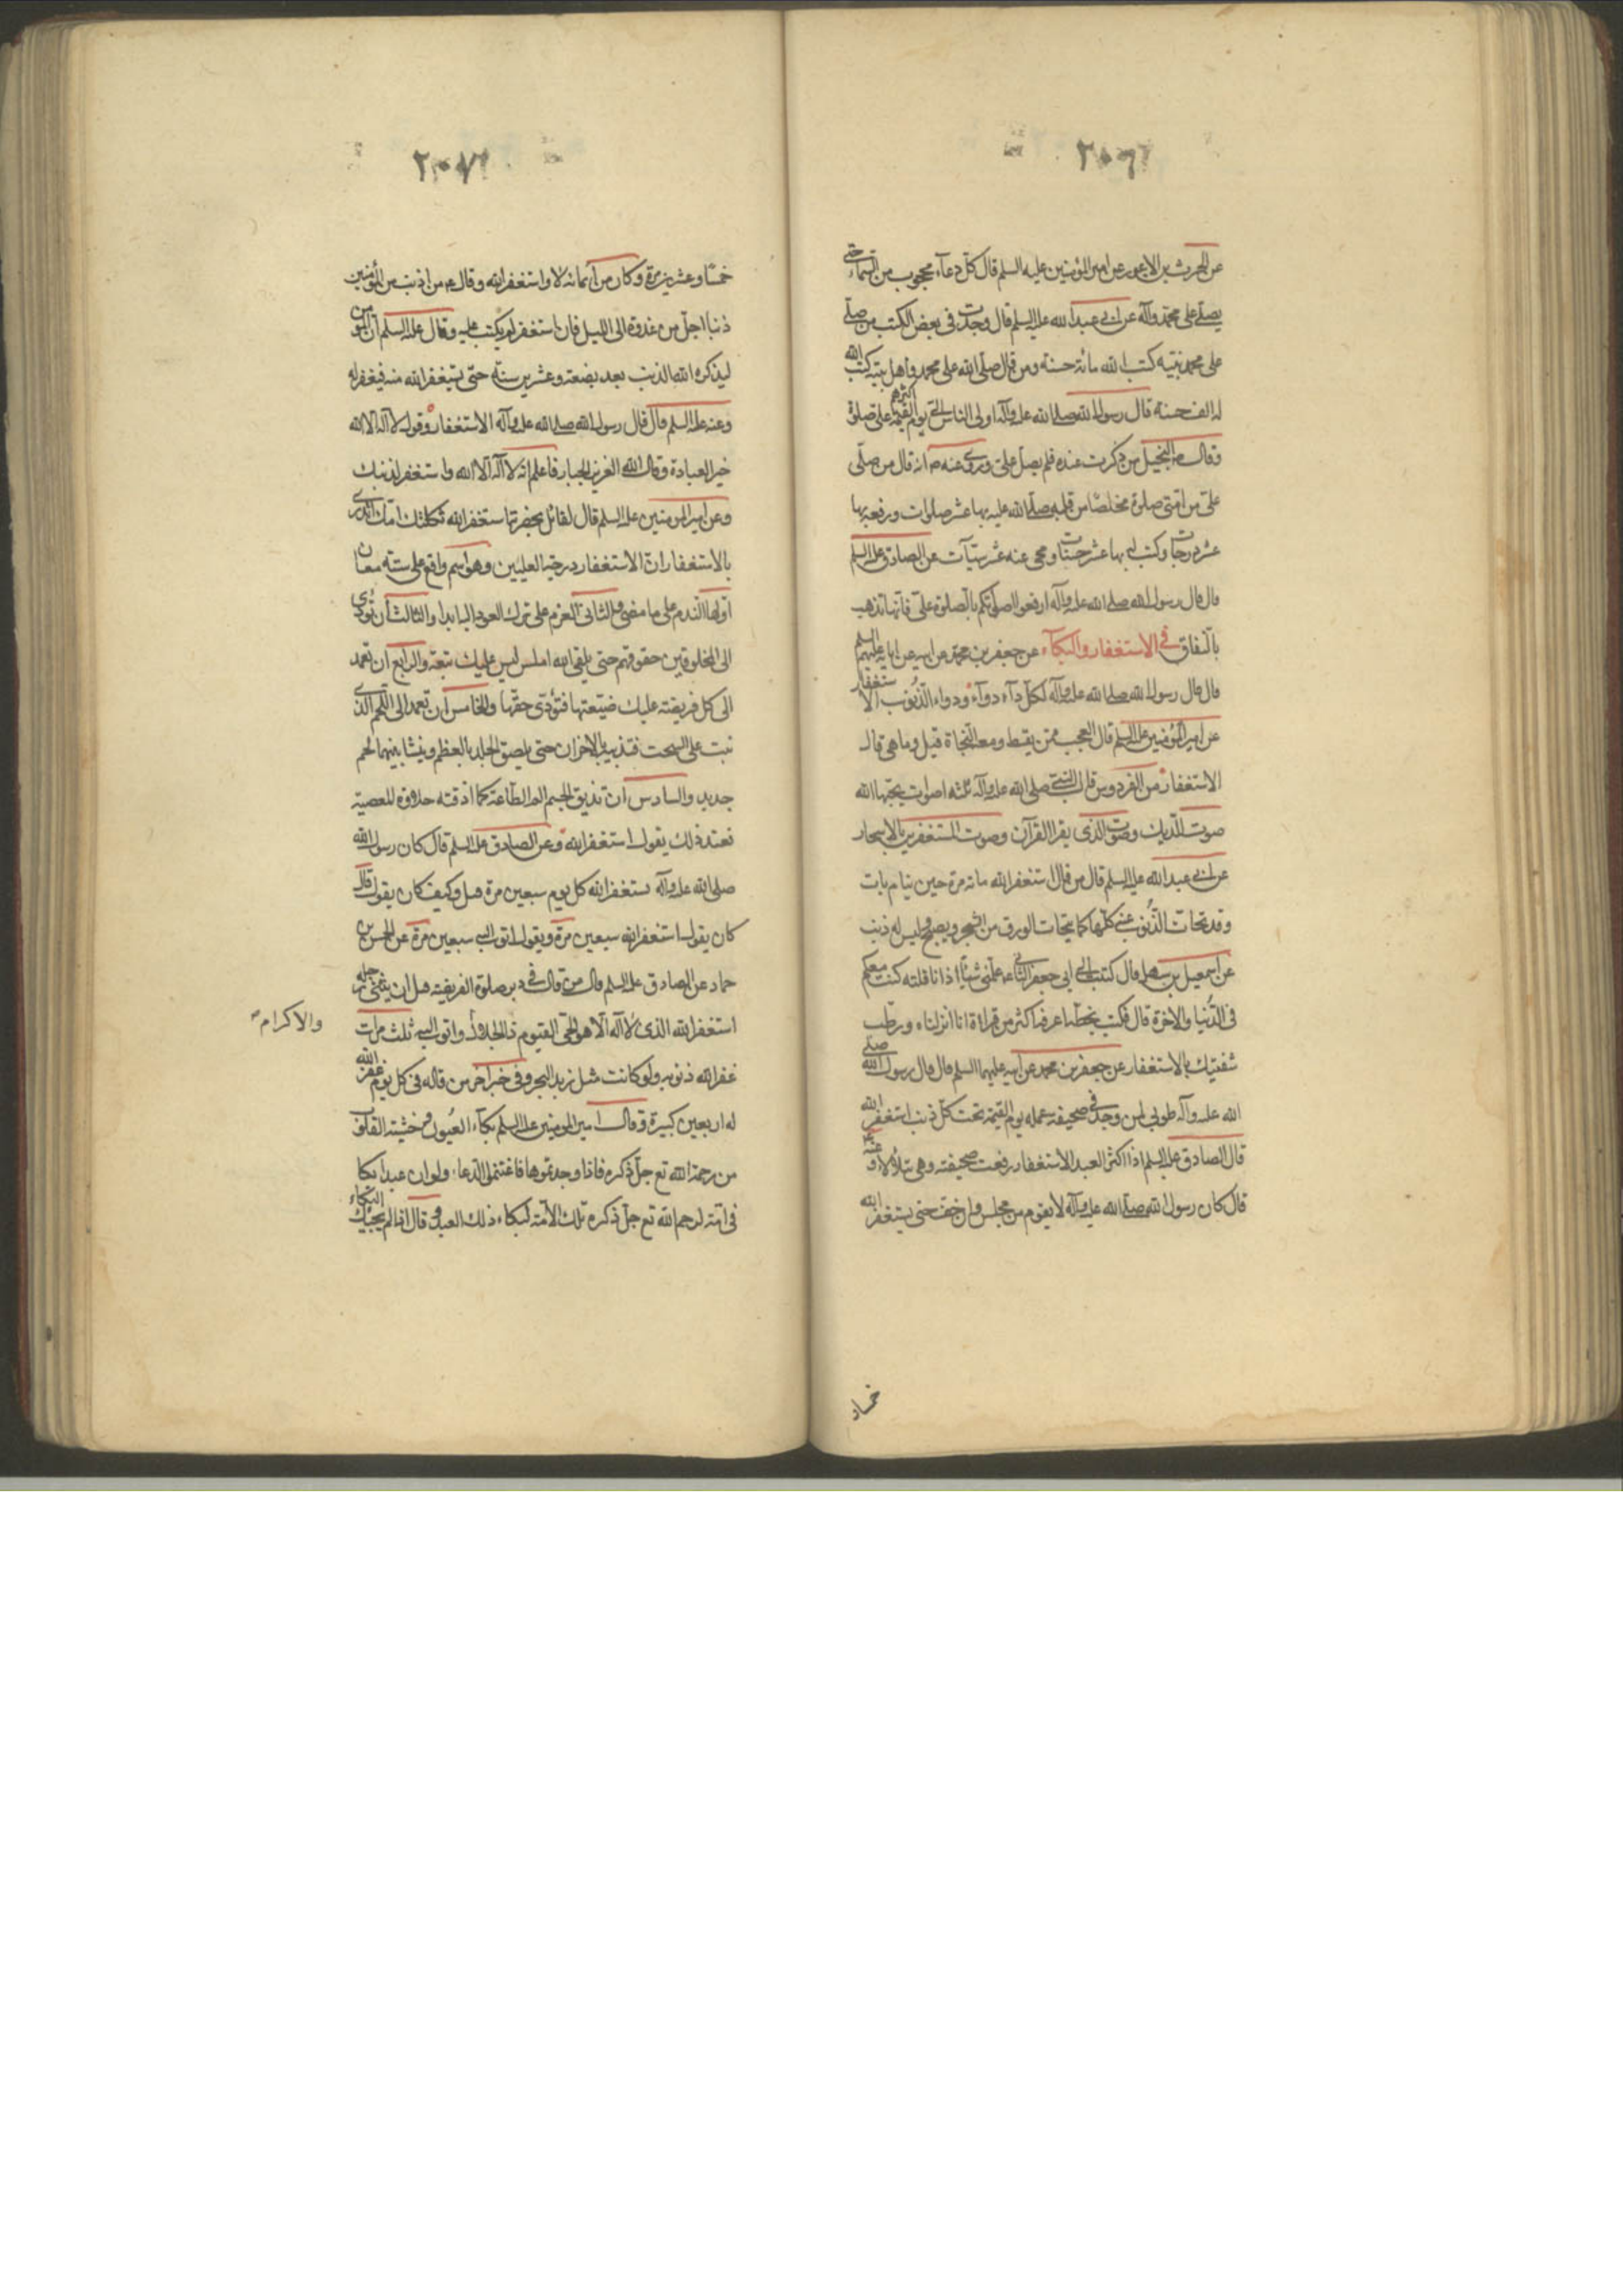 عن الحرث بن الاعور عن امير المؤمنين عليه السلم قال كل دعاء محجوب من السماء حتى
يصلى على محمد وآله عن ابى عبد الله عليه السلم قال وجدت فى بعض الكتب من صلى
على محمد نبيه كتب الله مائة حسنة ومن قال صلى الله على محمد واهل بيته كتب الله
له الف حسنة قال رسول الله صلى الله عليه وآله اولى الناس بى يوم القيمة اكثرهم على صلوة
وقال ص البخيل من ذكرت عنده فلم يصل على وروى عنه ص انه قال من صلى
على من امتى صلوة مخلصا من قلبه صلى الله عليه بها عشر صلوات ورفعه بها
عشر درجات وكتب له بها عشر حسنات ومحى عنه عشر سيئات عن الصادق عليه السلم
قال قال رسول الله صلى الله عليه وآله ارفعوا اصواتكم بالصلوة على فانها تذهب
بالنفاق فى الاستغفار والبكاء عن جعفر بن محمد عن ابيه عن ابايه عليهم السلم
قال قال رسول الله صلى الله عليه وآله لكل داء دواء ودواء الذنوب الاستغفار
عن امير المؤمنين عليه السلم قال العجب ممن يقنط ومعه النجاة قيل وما هى قال
الاستغفار من الفردوس قال النبى صلى الله عليه وآله ثلثه اصوات يحبها الله
صوت الديك وصوت الذى يقرا القرآن وصوت المستغفرين بالاسحار
عن ابى عبد الله عليه السلم قال من قال استغفر الله مائة مرة حين ينام بات
وقد تحات الذنوب عنه كلها كما يتحات الورق من الشجر ويصبح وليس له ذنب
عن اسمعيل بن سهل قال كتبت الى ابى جعفر الثانى ع علمنى شيئا اذا انا قلته كنت معكم
فى الدنيا والاخرة قال فكتب بخطه اعرفه اكثر من قراءة انا انزلناه ورطب
شفتيك بالاستغفار عن جعفر بن محمد عن ابيه عليهما السلم قال قال رسول الله صلى
الله عليه وآله طوبى لمن وجد فى صحيفة عمله يوم القيمة تحت كل ذنب استغفر الله
قال الصادق عليه السلم اذا اكثر العبد الاستغفار رفعت صحيفته وهى تتلألأ وعنه ع
قال كان رسول الله صلى الله عليه وآله لا يقوم من مجلس وان خف حتى يستغفر الله
خمسا
خمسا وعشرين مرة وكان من ايمانه لا واستغفر الله وقال ع من اذنب من المؤمنين
ذنبا اجل من غدوة الى الليل فان استغفر لم يكتب عليه وقال عليه السلم ان المؤمن
ليذكره الله الذنب بعد بضعة وعشرين سنة حتى يستغفر الله منه فيغفر له
وعنه عليه السلم قال قال رسول الله صلى الله عليه وآله الاستغفار وقول لا اله الا الله
خير العبادة وقال الله العزيز الجبار فاعلم انه لا اله الا الله واستغفر لذنبك
وعن امير المؤمنين عليه السلم قال لقائل بحضرته استغفر الله ثكلتك امك اتدرى
بالاستغفار ان الاستغفار درجة العليين وهو اسم واقع على ستة معان
اولها الندم على ما مضى والثانى العزم على ترك العود اليه ابدا والثالث ان تودى
الى المخلوقين حقوقهم حتى يلقى الله املس ليس عليك تبعة والرابع ان تعمد
الى كل فريضة عليك ضيعتها فتودى حقها والخامس ان تعمد الى اللحم الذى
نبت على السحت فتذيبه بالاحزان حتى يلصق الجلد بالعظم وينشا بينهما لحم
جديد والسادس ان تذيق الجسم الم الطاعة كما اذقته حلاوة المعصية
فعند ذلك يقول استغفر الله وعن الصادق عليه السلم قال كان رسول الله
صلى الله عليه وآله يستغفر الله كل يوم سبعين مرة قيل وكيف كان يقول قال
كان يقول استغفر الله سبعين مرة ويقول اتوب اليه سبعين مرة عن الحسن بن
حماد عن الصادق عليه السلم قال من قال فى دبر صلوة الفريضة قبل ان يثنى رجله
استغفر الله الذى لا اله الا هو الحى القيوم ذا الجلال واتوب اليه ثلث مرات
والاكرام
غفر الله ذنوبه ولو كانت مثل زبد البحر وفى خبر آخر من قاله فى كل يوم غفر الله
له اربعين كبيرة وقال امير المؤمنين عليه السلم بكاء العيون وخشية القلوب
من رحمة الله تع جل ذكره فاذا وجدتموها فاغتنموا الدعا ولو ان عبدا بكا
فى امة لرحم الله تع جل ذكره تلك الامة لبكاء ذلك العبد وقال اذا لم يجئك البكاء